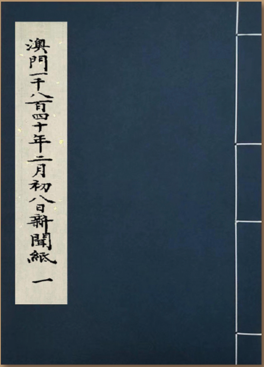 澳門一千八百四十年二月初八日新聞紙 一